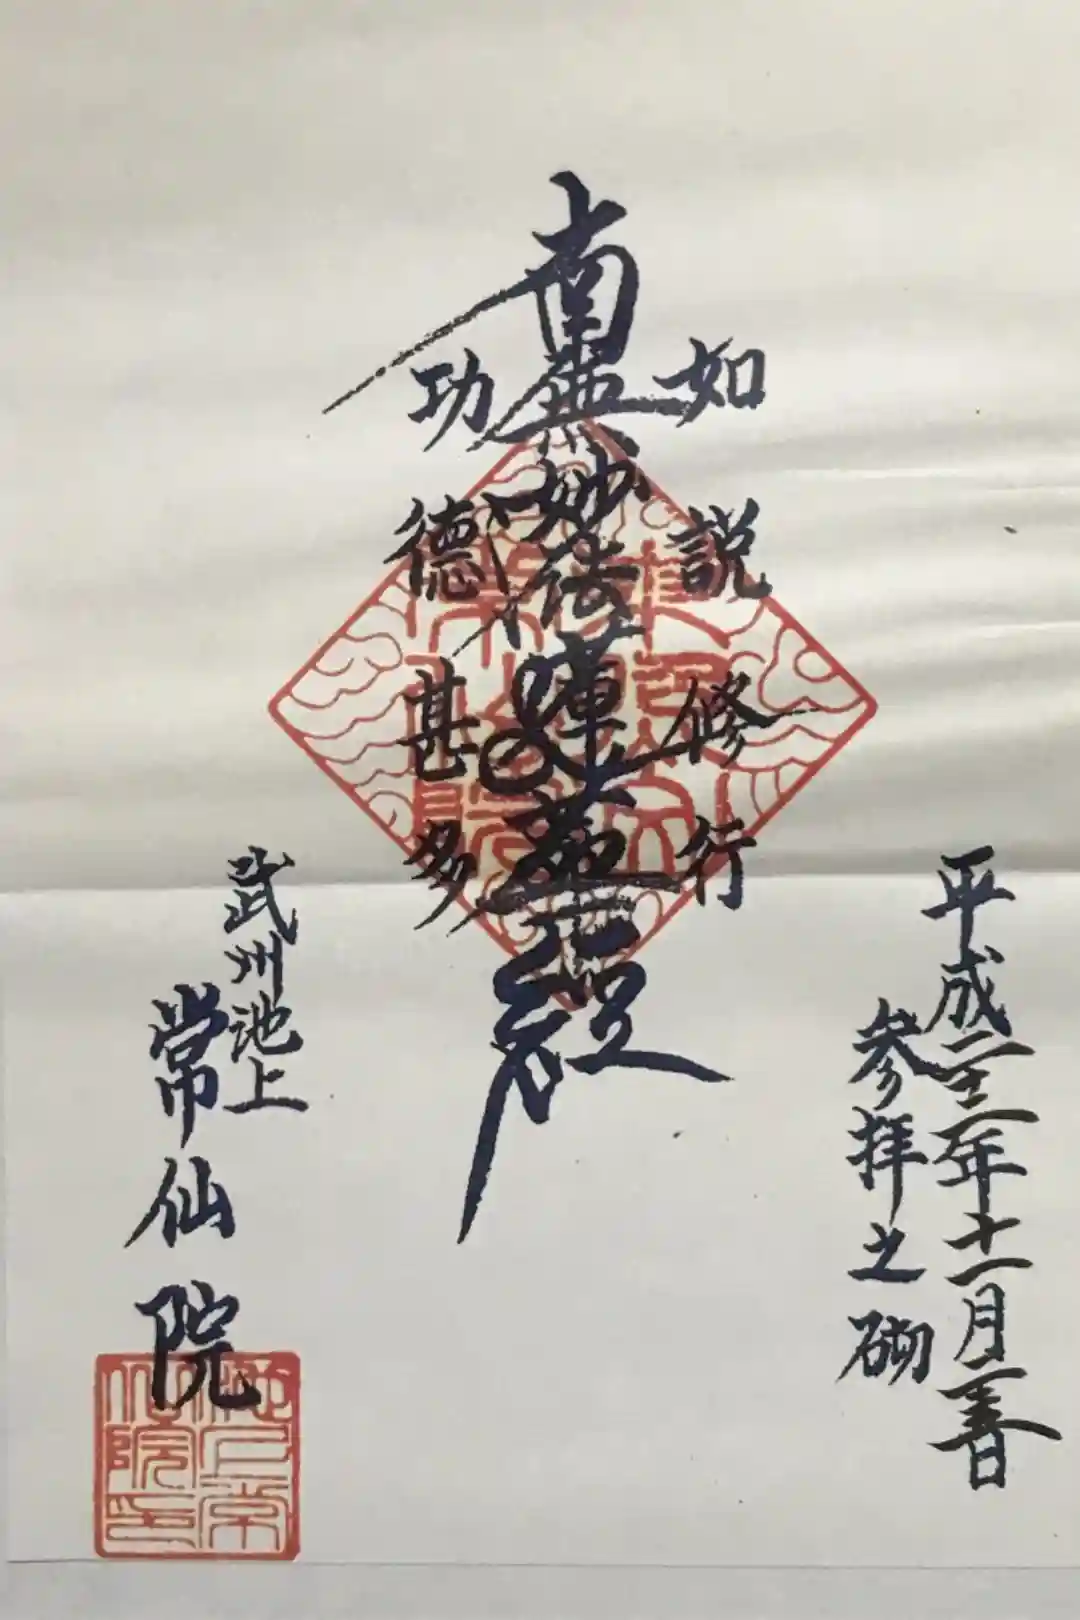 平成 年十一月 日
参拝之砌
如説修行
南無妙法蓮華経
功徳甚多
武州池上
常仙院
池上常
仙院印